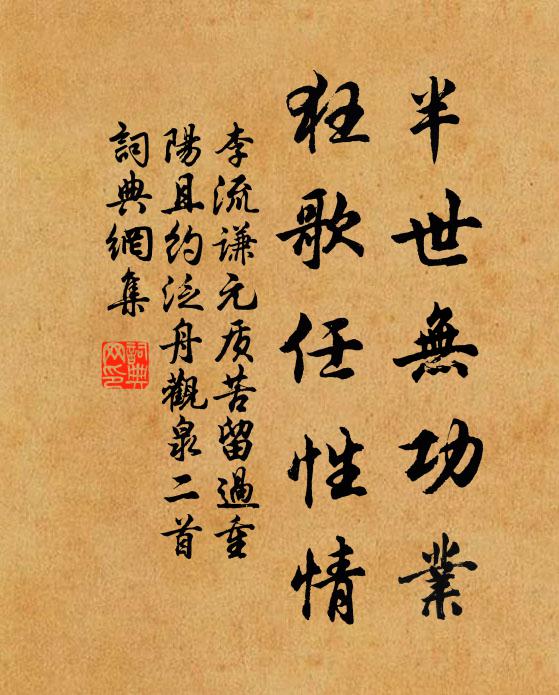 半世無功業
狂歌任性情
李流谦元质苦留過重
陽且約泛舟觀泉二首
詞典網集
詞典網印